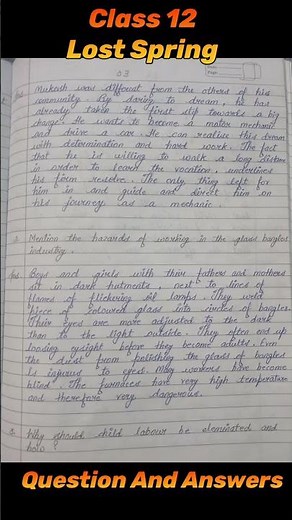 Class 12
Lost Spring
03
Ans Mukesh was different from the others of his
community. By daring to dream, he has
already taken the first step towards a big
change. He wants to become a motor mechanic
and drive a car. He can realise this dream
with determination and hard work. The fact
that he is willing to walk a long distance
in order to learn the vocation, underlines
his firm resolve. The only thing left for
him in and guide and direct him on
his journey as a mechanic.
Mention the hazards of working in the glass bangles
industry.
Ans Boys and girls with thier fathers and mothers
sit in dark hutments, next to lines of
flames of flickering oil lamps. They weld
piece of coloured glass into circles of bangles
Their eyes are more adjusted to the dark
than to the light outside. They often end up
loosing eyesight before they become adults. Even
the dust from polishing the glass of bangles
is injurous to eyes. Many workers have become
blind. The furnaces have very high temperature
and therefore very dangerous.
Why should child labour be eleminated and
how?
Question And Answers